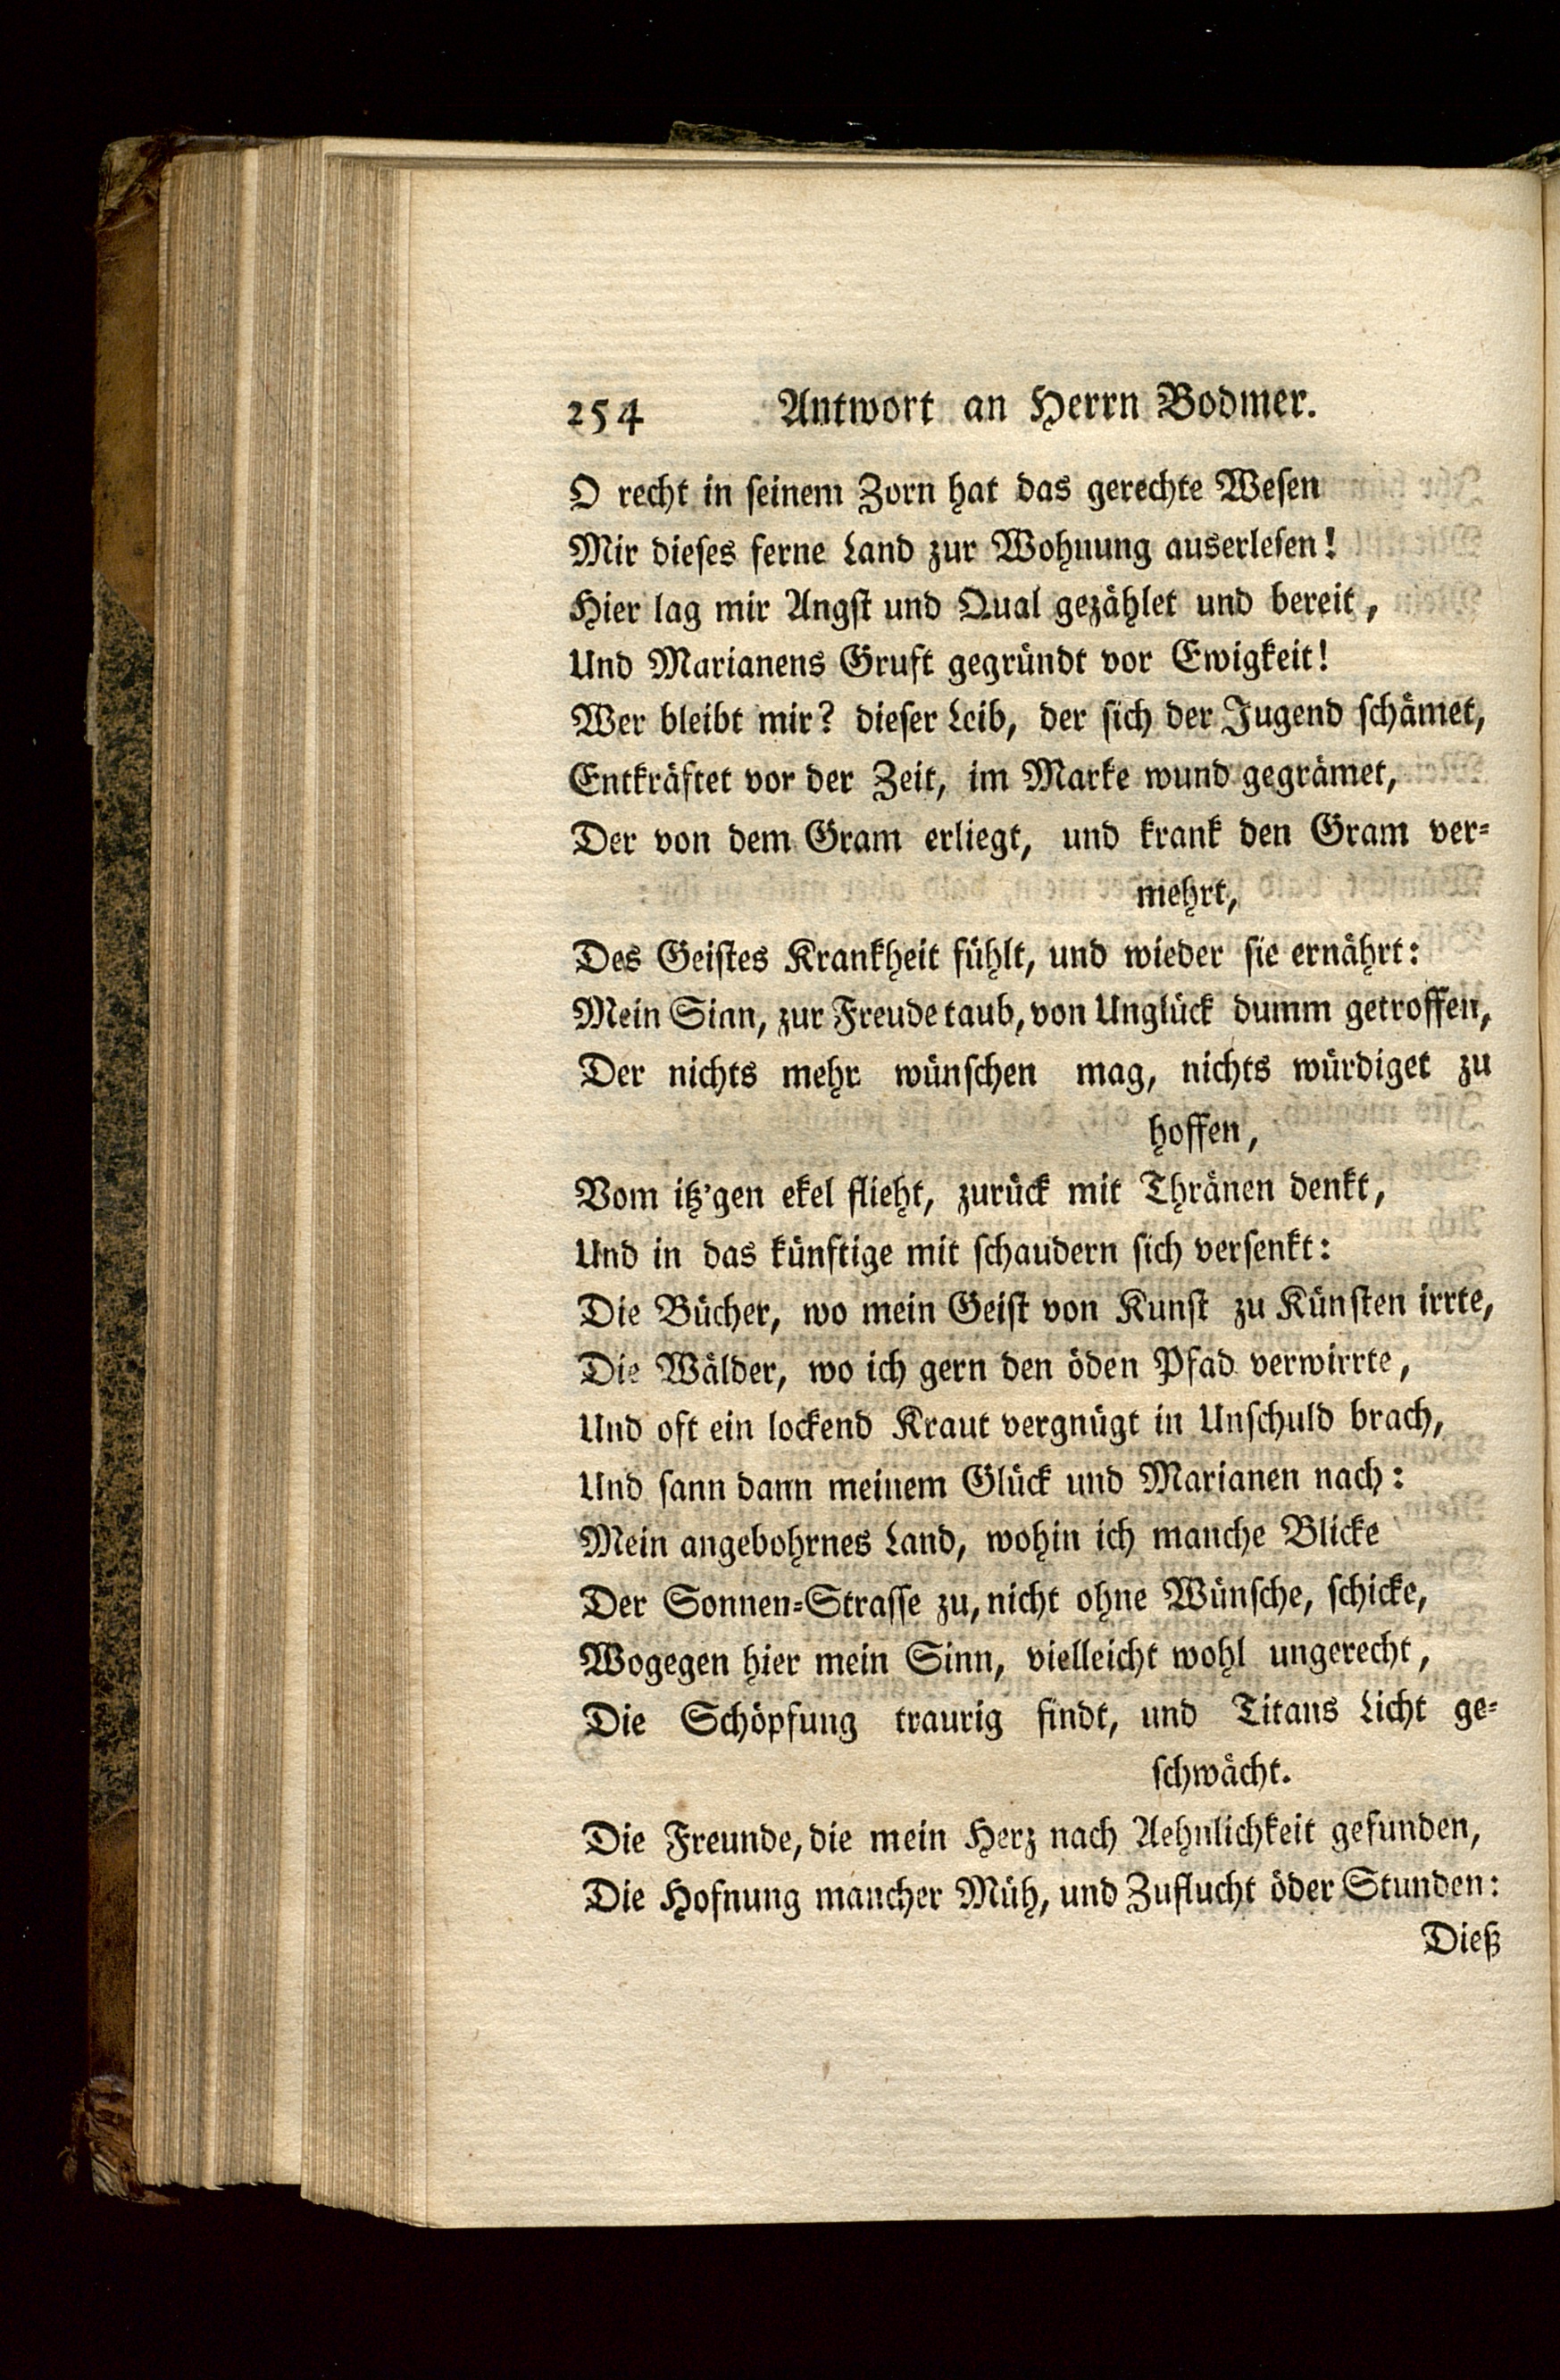 254 Antwort an Herrn Bodmer.
O recht in seinem Zorn hat das gerechte Wesen
Mir dieses ferne Land zur Wohnung auserlesen!
Hier lag mir Angst und Qual gezählet und bereit,
Und Marianens Gruft gegründt vor Ewigkeit!
Wer bleibt mir? dieser Leib, der sich der Jugend schämet,
Entkräftet vor der Zeit, im Marke wund gegrämet,
Der von dem Gram erliegt, und krank den Gram ver-
mehrt,
Des Geistes Krankheit fühlt, und wieder sie ernährt:
Mein Sinn, zur Freude taub, von Unglück dumm getroffen,
Der nichts mehr wünschen mag, nichts würdiget zu
hoffen,
Vom itz'gen ekel flieht, zurück mit Thränen denkt,
Und in das künftige mit schaudern sich versenkt:
Die Bücher, wo mein Geist von Kunst zu Künsten irrte,
Die Wälder, wo ich gern den öden Pfad verwirrte,
Und oft ein lockend Kraut vergnügt in Unschuld brach,
Und sann dann meinem Glück und Marianen nach:
Mein angebohrnes Land, wohin ich manche Blicke
Der Sonnen-Strasse zu, nicht ohne Wünsche, schicke,
Wogegen hier mein Sinn, vielleicht wohl ungerecht,
Die Schöpfung traurig findt, und Titans Licht ge-
schwächt.
Die Freunde, die mein Herz nach Aehnlichkeit gefunden,
Die Hofnung mancher Müh, und Zuflucht öder Stunden:
Dieß